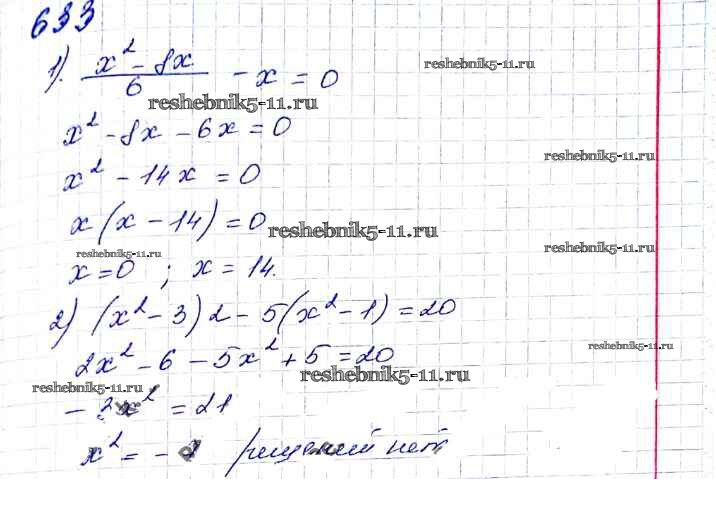 633
1). (x² - 8x)/6 - x = 0
x² - 8x - 6x = 0
x² - 14x = 0
x(x - 14) = 0
x = 0 ; x = 14.
2) (x² - 3) 2 - 5(x² - 1) = 20
2x² - 6 - 5x² + 5 = 20
- 3x² = 21
x² = - 7 решений нет
reshebnik5-11.ru
reshebnik5-11.ru
reshebnik5-11.ru
reshebnik5-11.ru
reshebnik5-11.ru
reshebnik5-11.ru
reshebnik5-11.ru
reshebnik5-11.ru
reshebnik5-11.ru